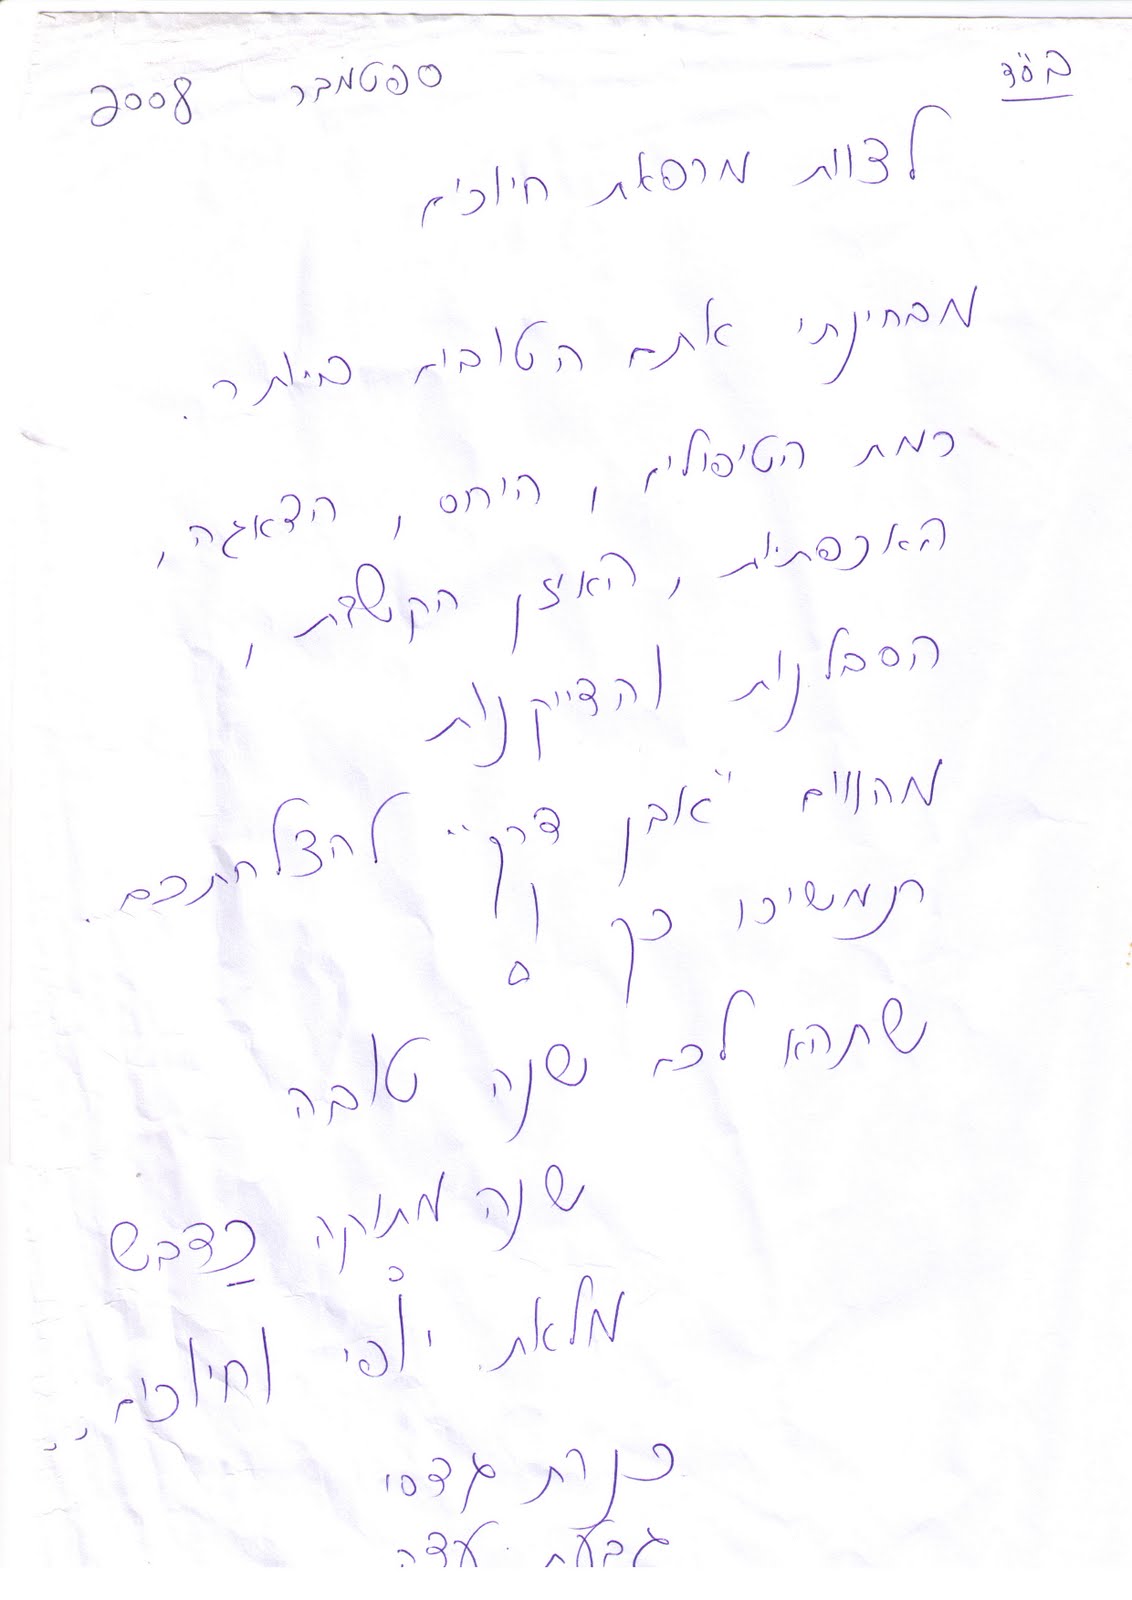 בס"ד
ספטמבר 2008
לצוות מרפאת חיוכים
מבחינתי אתם הטובים ביותר.
רמת הטיפולים, היחס, הדאגה,
האכפתיות, האוזן הקשבת,
הסבלנות והדייקנות
מהווים "אבן דרך" להצלחתכם.
תמשיכו כך!
שתהא לכם שנה טובה
שנה מתוקה כַּדבש
מלאת יופי וחיוכים"
כנרת גדסי
גבעת עדה